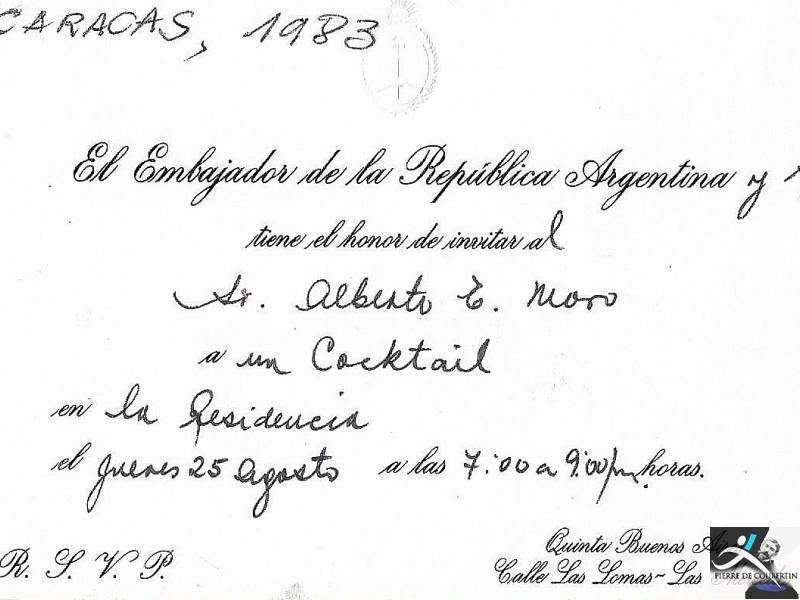 CARACAS, 1983
El Embajador de la República Argentina y
tiene el honor de invitar al
Sr. Alberto E. Moro
a un Cocktail
en la Residencia
el Jueves 25 Agosto a las 7:00 a 9:00 pm horas.
R. S. V. P.
Quinta Buenos
Calle Las Lomas - Las
PIERRE DE COUBERTIN